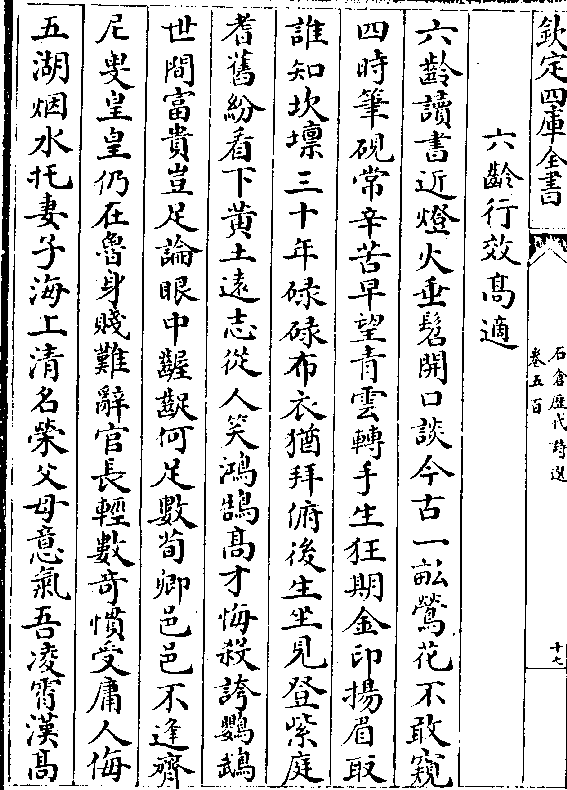 欽定四庫全書
石倉歷代詩選
卷五百
十七
六齡行效高適
六齡讀書近燈火垂髫開口談今古一畝鶯花不敢窺
四時筆硯常辛苦早望青雲轉手生狂期金印揚眉取
誰知坎壈三十年碌碌布衣猶拜俯後生坐見登紫庭
耆舊紛看下黃土遠志從人笑鴻鵠高才悔殺誇鸚鵡
世間富貴豈足論眼中齷齪何足數荀卿邑邑不逢齊
尼叟皇皇仍在魯身賤難辭官長輕數奇慣受庸人侮
五湖烟水托妻子海上清名榮父母意氣吾凌霄漢高